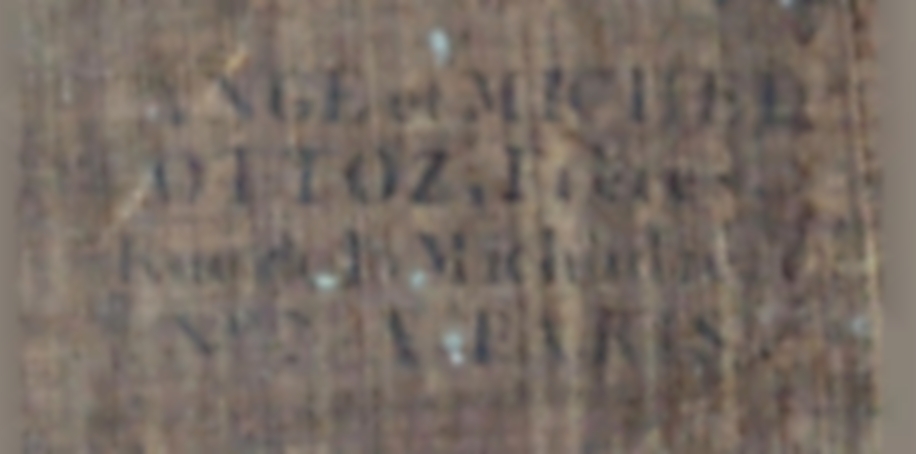 ANGE et MICHEL
OTTOZ, Frères
Rue de la Michodière
N° 2 A PARIS